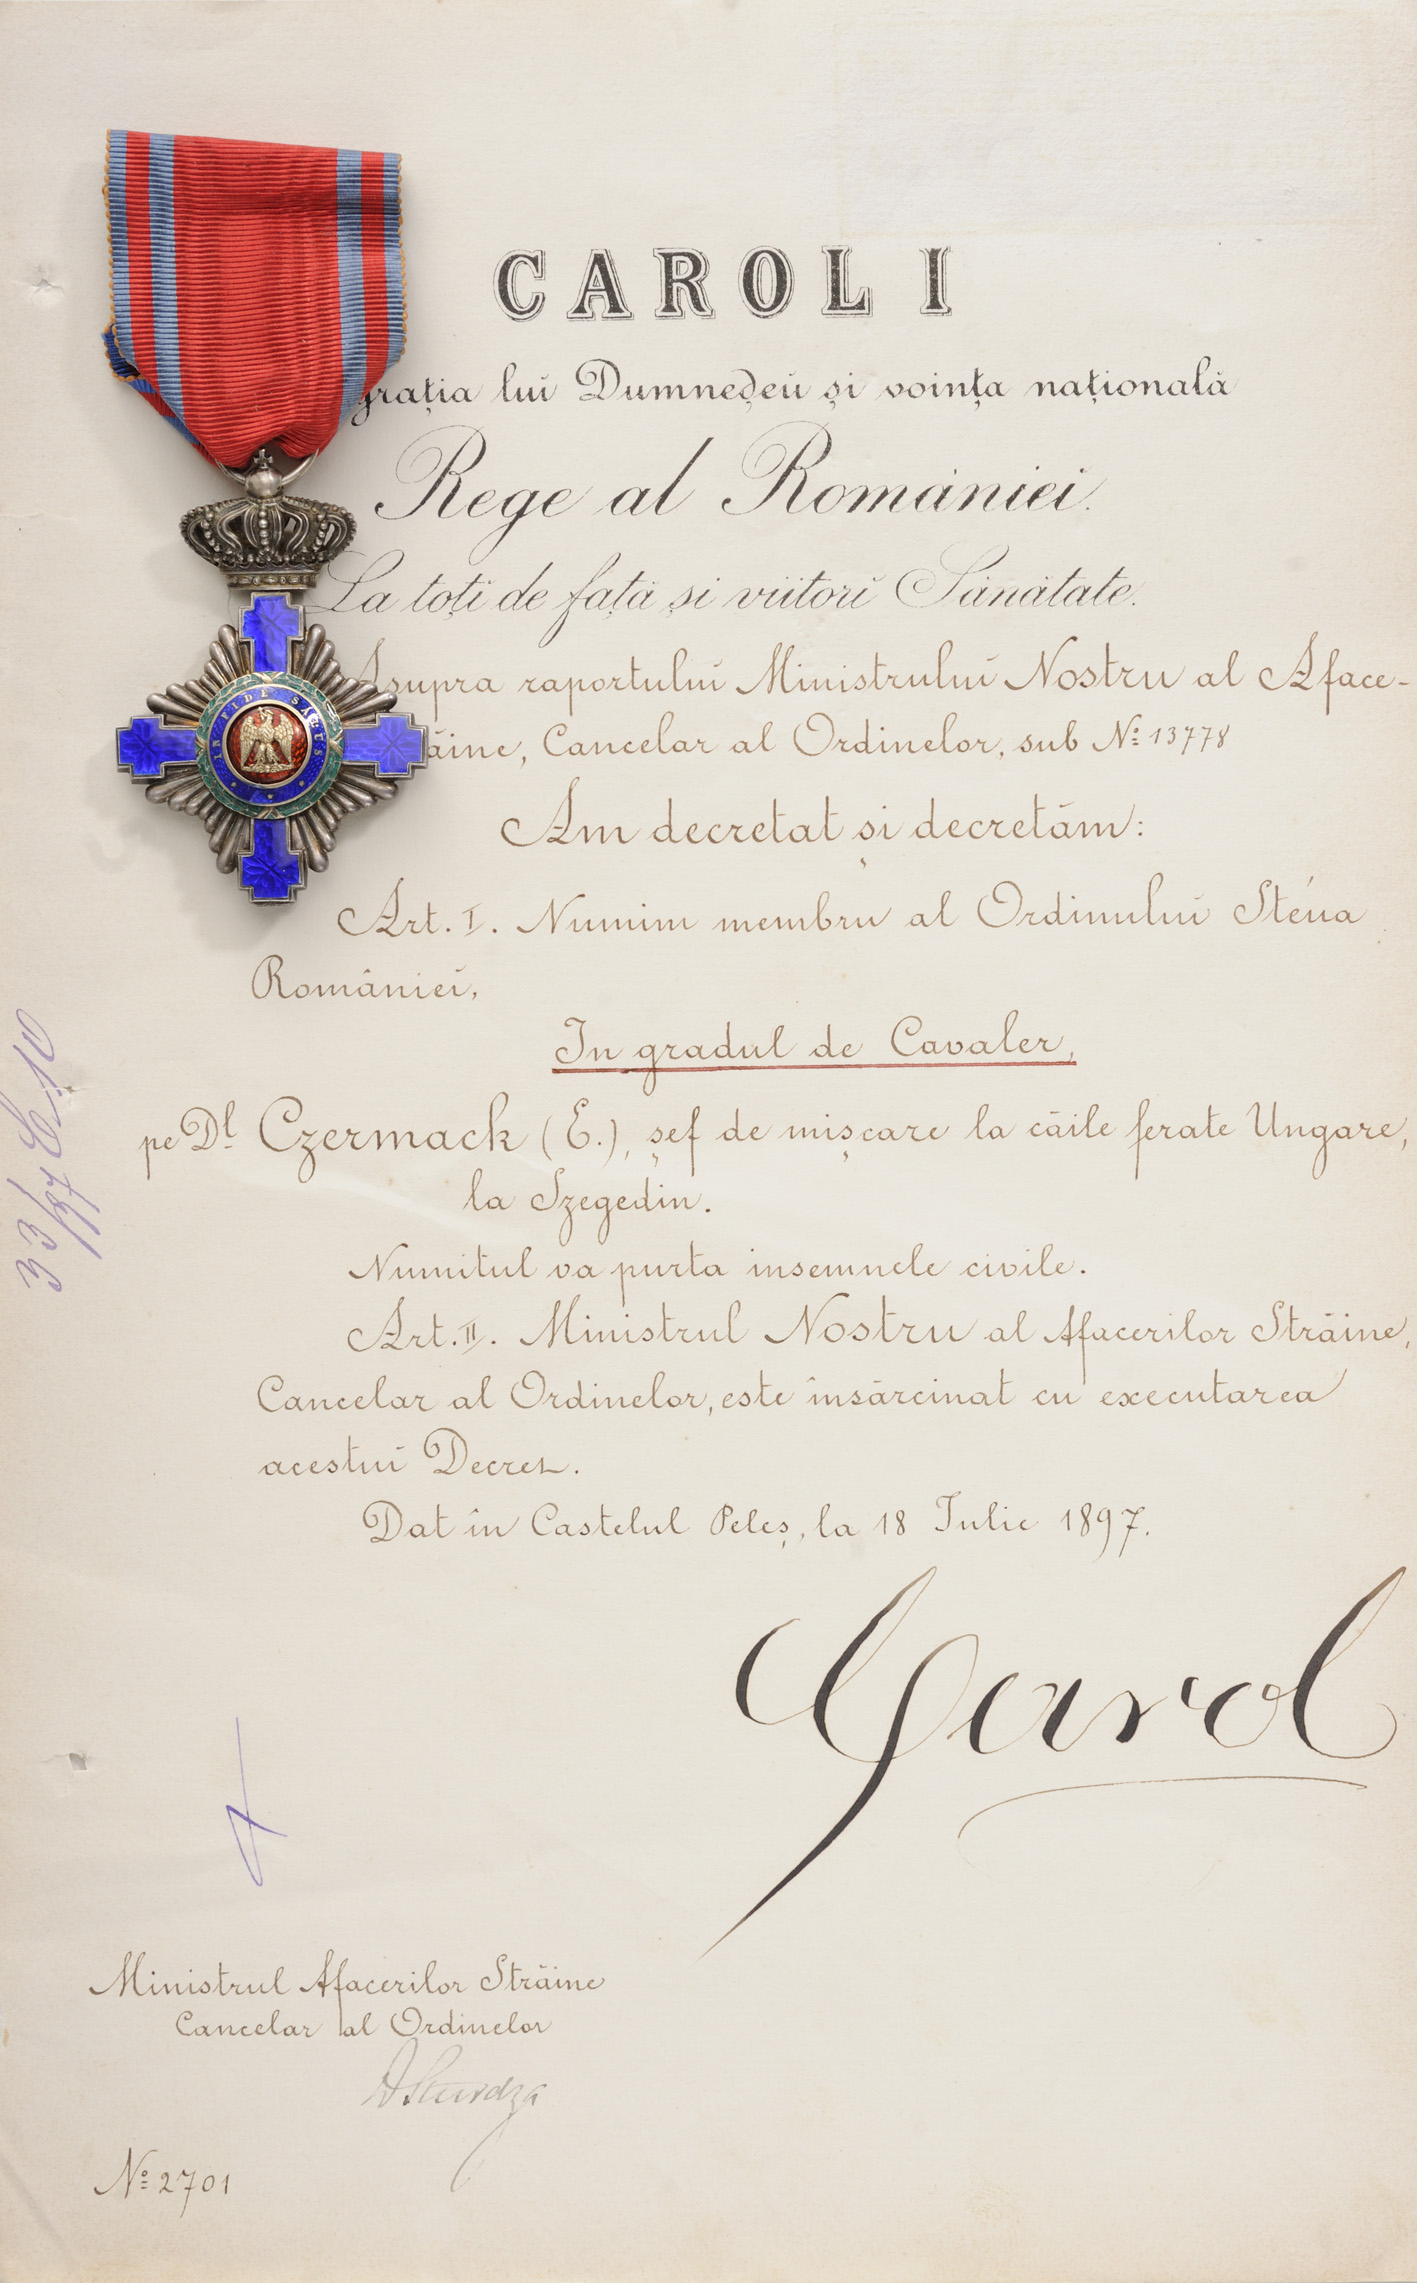 CAROL I
grația lui Dumnedeu și voința națională
Rege al României.
La toți de față și viitori Sănătate.
Asupra raportului Ministrului Nostru al Aface-
ăine, Cancelar al Ordinelor, sub No 13778
Am decretat și decretăm:
Art. I. Numim membru al Ordinului Stéua
României,
In gradul de Cavaler,
pe Dl Czermack (E.), șef de mișcare la căile ferate Ungare,
la Szegedin.
Numitul va purta insemnele civile.
Art. II. Ministrul Nostru al Afacerilor Străine,
Cancelar al Ordinelor, este însărcinat cu executarea
acestui Decret.
Dat în Castelul Peleș, la 18 Iulie 1897.
Carol
Ministrul Afacerilor Străine
Cancelar al Ordinelor
DSturdza
No 2701
IN FIDE SALUS
33/97